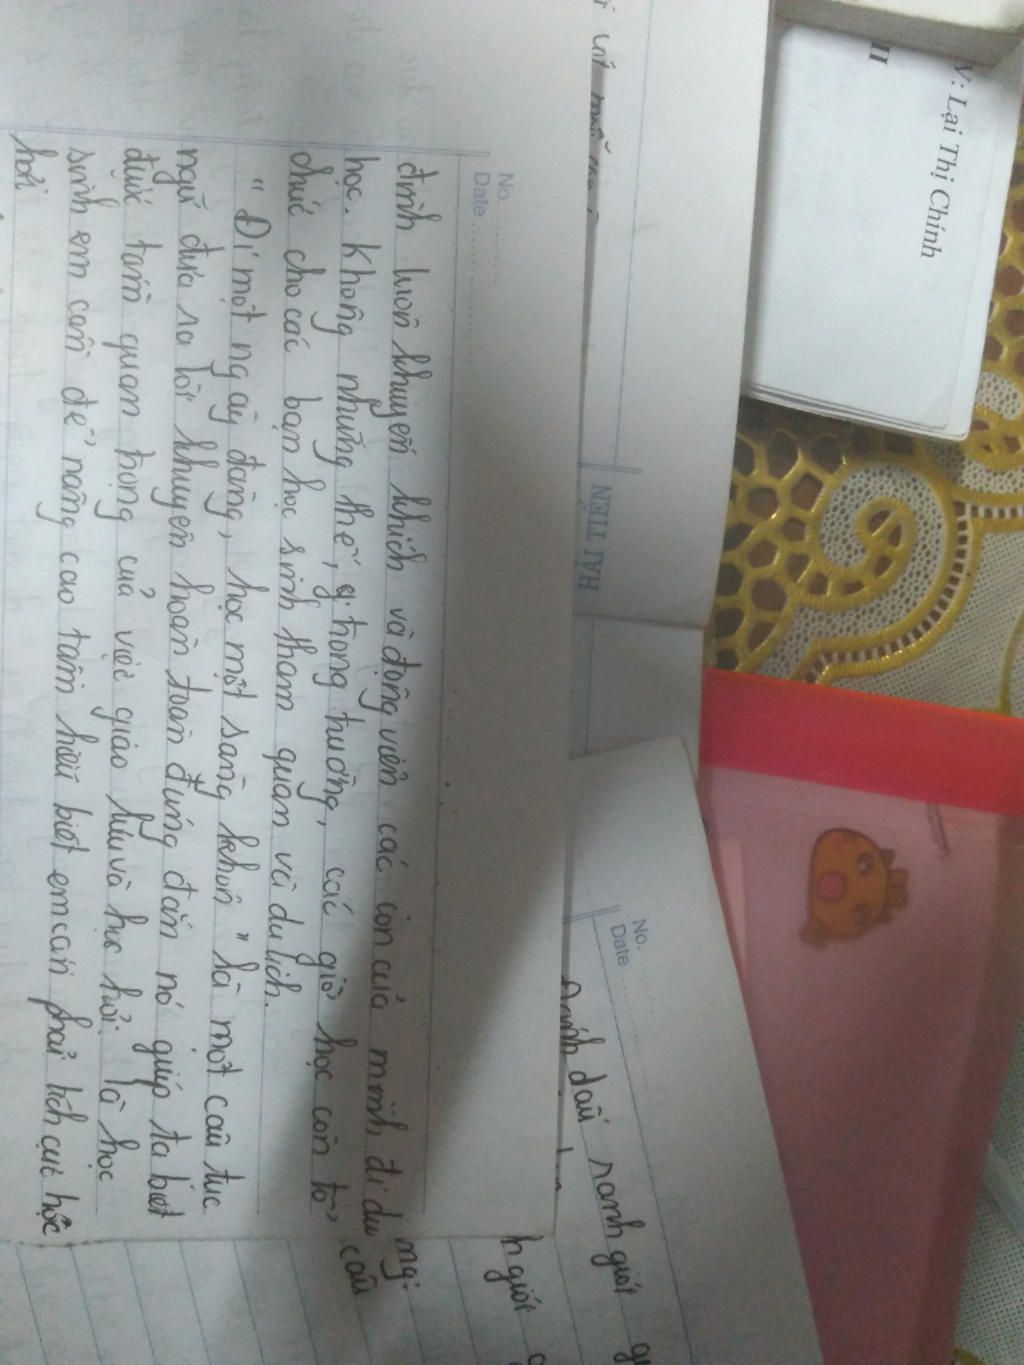 V: Lại Thị Chính
II
HẢI TIẾN
No.
Date
đình luôn khuyến khích và động viên các con của mình đi du
học. Không những thế, trong trường, các giờ học còn tổ
chức cho các bạn học sinh tham quan và du lịch.
"Đi một ngày đàng, học một sàng khôn" là một câu tục
ngữ đưa ra lời khuyên hoàn toàn đúng đắn nó giúp ta biết
được tầm quan trọng của việc giao lưu và học hỏi. là học
sinh em cần để nâng cao tầm hiểu biết em cần phải tích cực học
hỏi
No.
Date
Đánh dấu ranh giới
h giới
câu